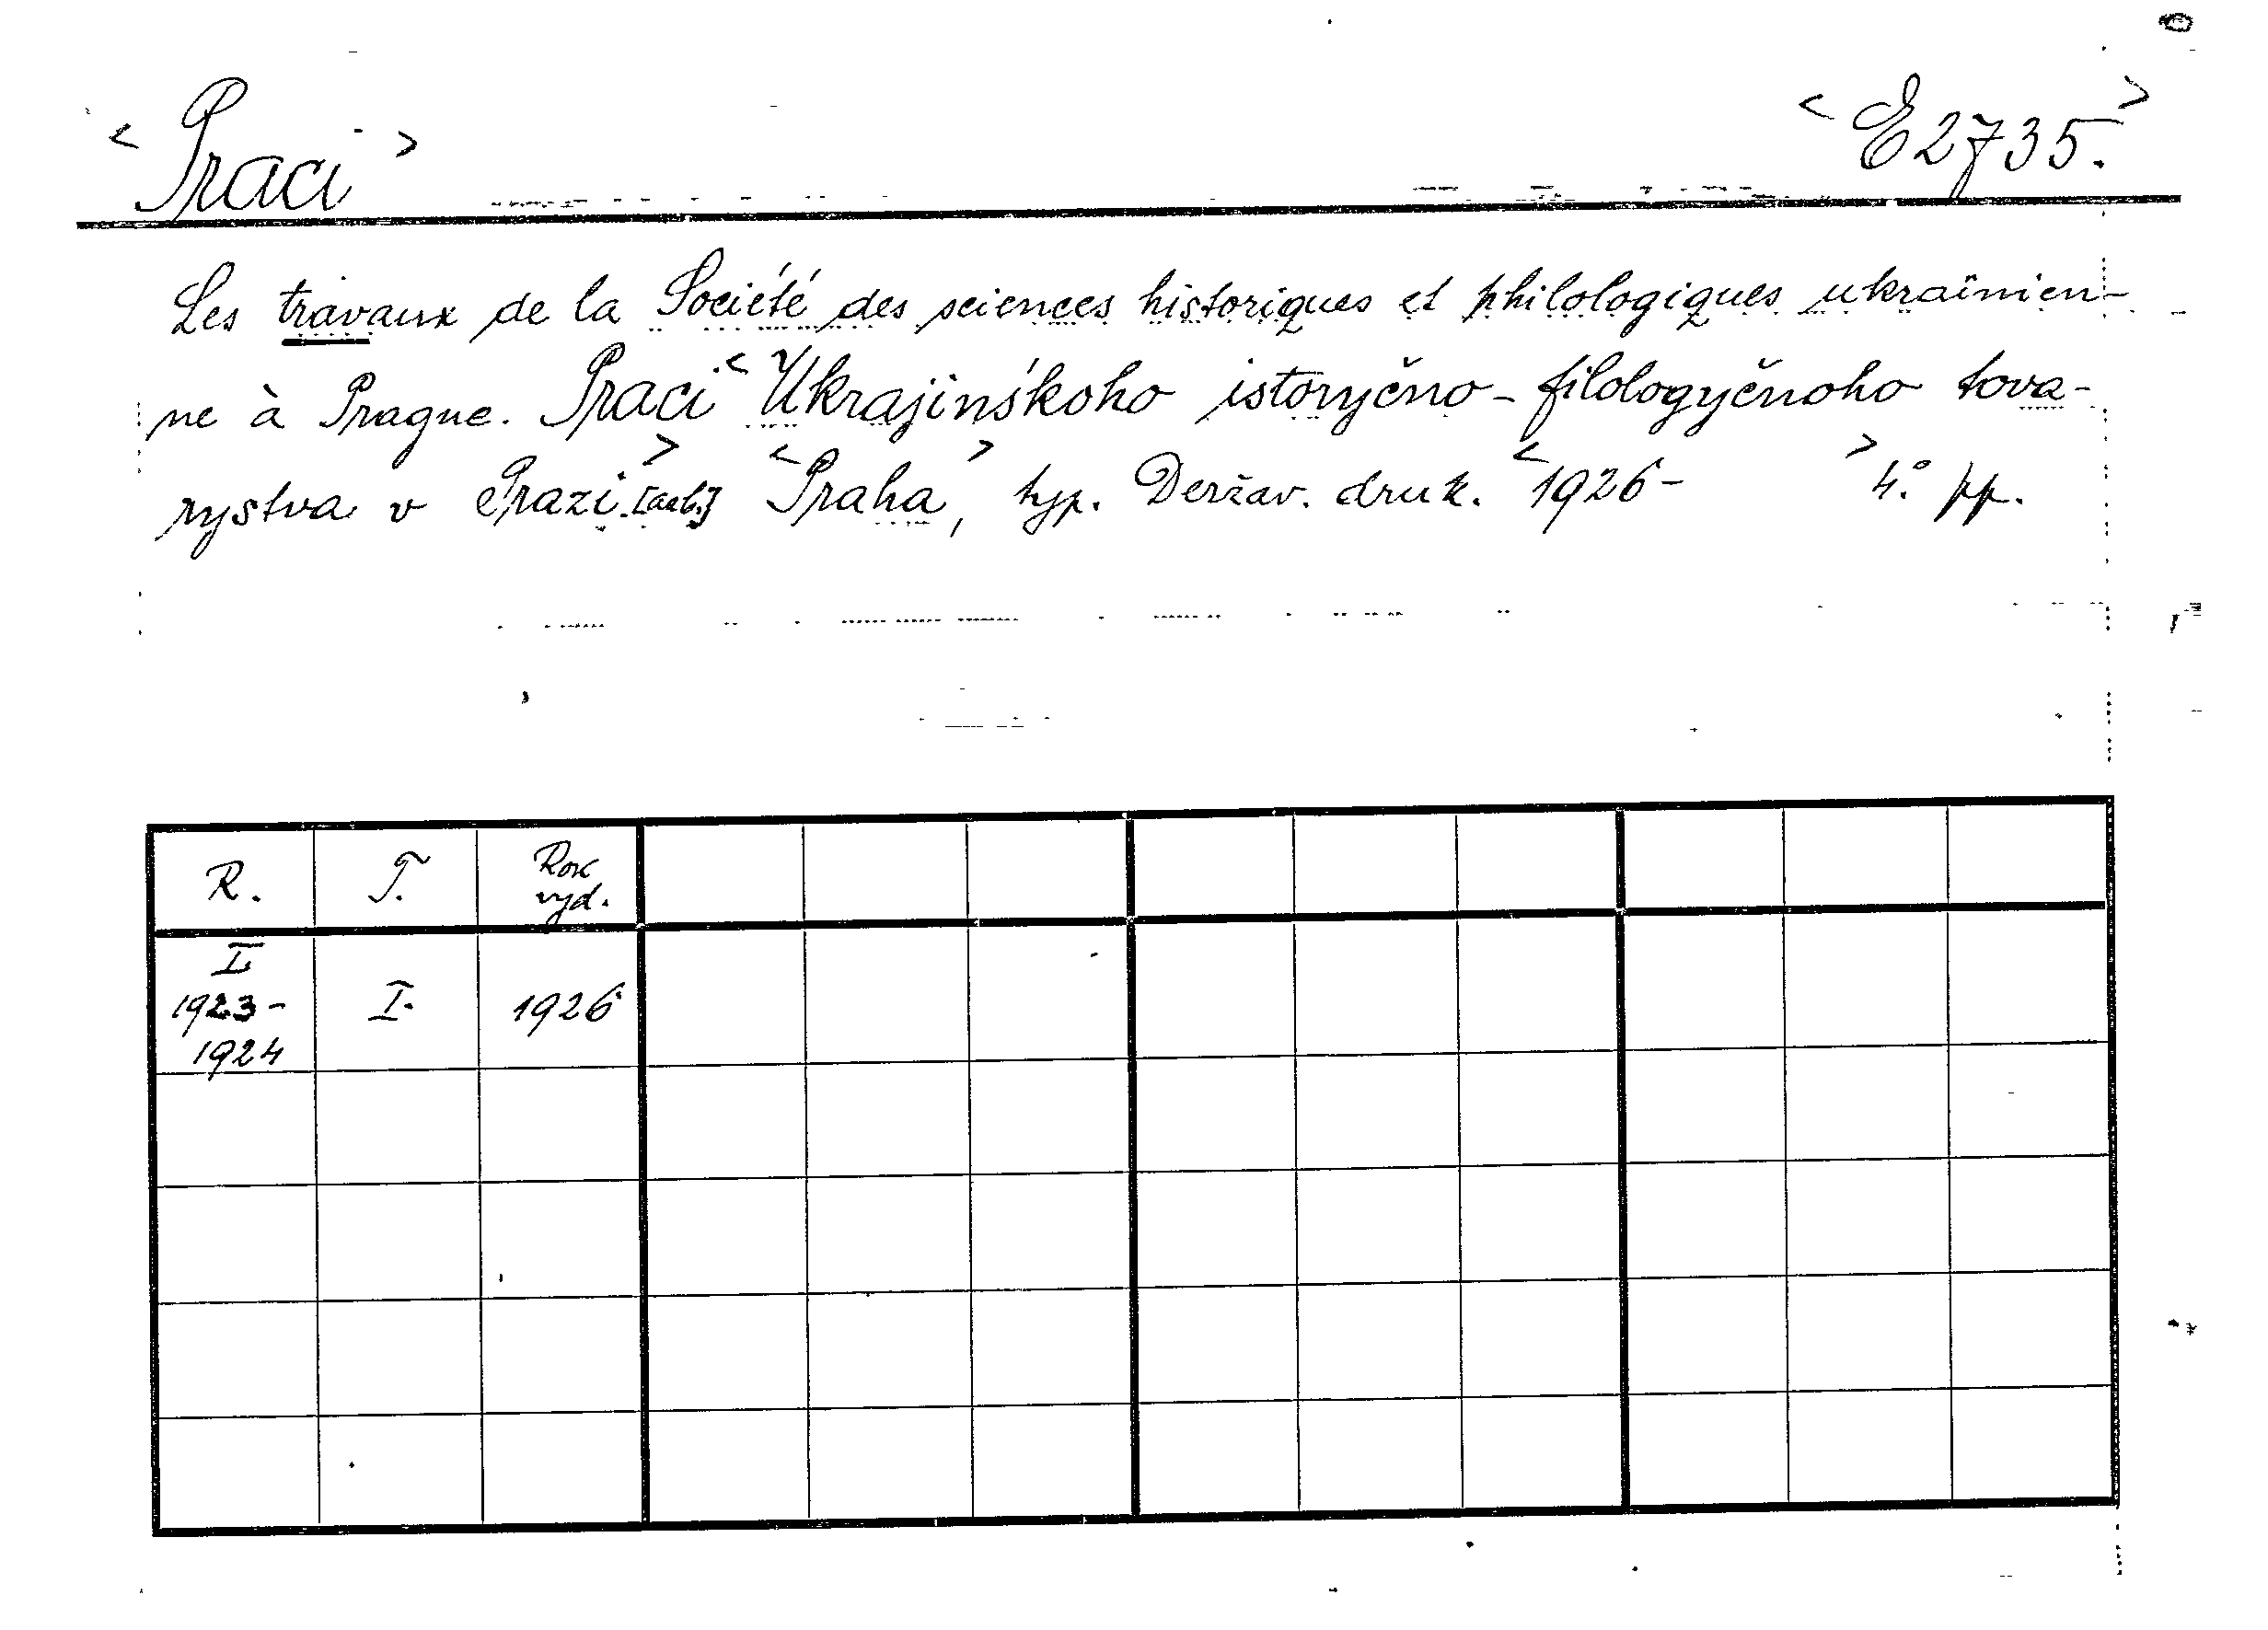 < Praci > < E 2735. >
Les travaux de la Société des sciences historiques et philologiques ukraïnien-
ne à Prague. Praci < Ukrajinśkoho istoryčno-filologyčnoho tova-
rystva v Prazi. > < Praha, > typ. Deržav. druk. < 1926- > 4.° pp.
R. T. Rok
vyd.
I.
1923- I. 1926
1924